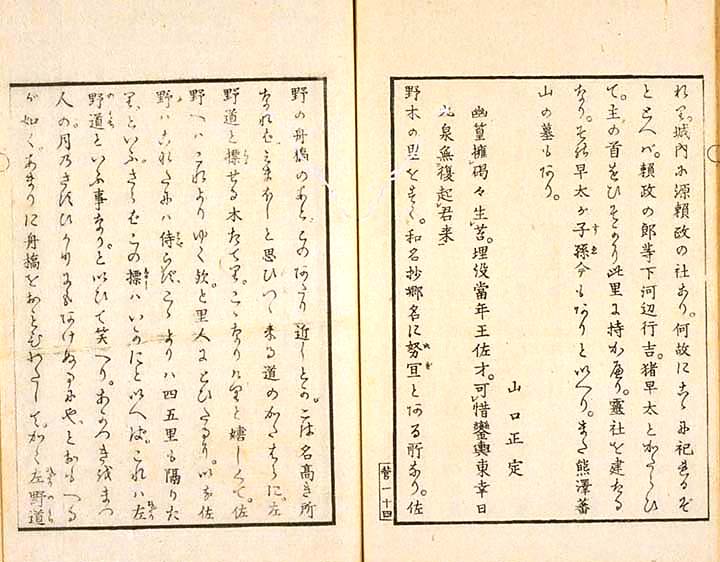 れり。城内に源頼政の社あり。何故にこゝに祀れるぞ
とゝへバ。頼政の郎等下河辺行吉。猪早太とかたらひ
て。主の首をひそかに此里に持かへり。靈社を建たる
なり。その早太か子孫今もありと以へり。また熊澤蕃
山の墓もあり。
山口正定
幽篁擁碣々生苔。埋没當年王佐才。可惜鑾輿東幸日
九泉無復起君来
野木の里をすく。和名抄郷名に努宜とある所なり。佐
營一十四
野の舟橋のあと。このあたり近しとそ。こは名高き所
なれは。みまほしと思ひつゝ来る道のかたはらに。左
野道と標せる木たてり。こゝなりけりと嬉しくて。佐
野へハこれよりゆく歟。と里人にとひたるに。いな佐
野ハこれたにハ侍らす。こゝよりハ四五里も隔りた
り。といふ。さらはこの標ハいかにと以へは。これハ左
野道といふ事なりと以ひて笑へり。あかつきをまつ
人の。月乃 にもあけぬるにや。とおもへる
か如く。あまりに舟橋を わたして。かく左野道